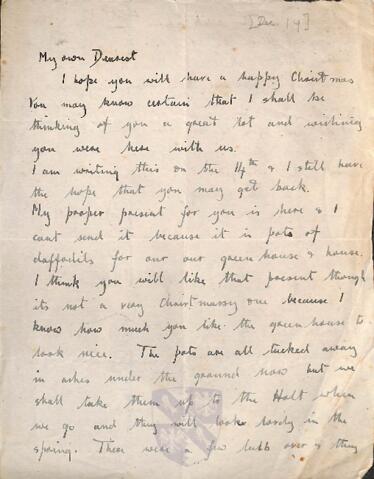 [Dec 17]
My own Dearest
I hope you will have a happy Christmas
You may know certain that I shall be
thinking of you a great lot and wishing
you were here with us.
I am writing this on the 14th & I still have
the hope that you may get back.
My proper present for you is here & I
cant send it because it is pots of
daffodils for our our greenhouse & house.
I think you will like that present though
its not a very Christmassy one because I
know how much you like the greenhouse to
look nice. The pots are all tucked away
in ashes under the ground now but we
shall take them up to the Holt when
we go and they will look lovely in the
spring. There were a few bulbs over & they